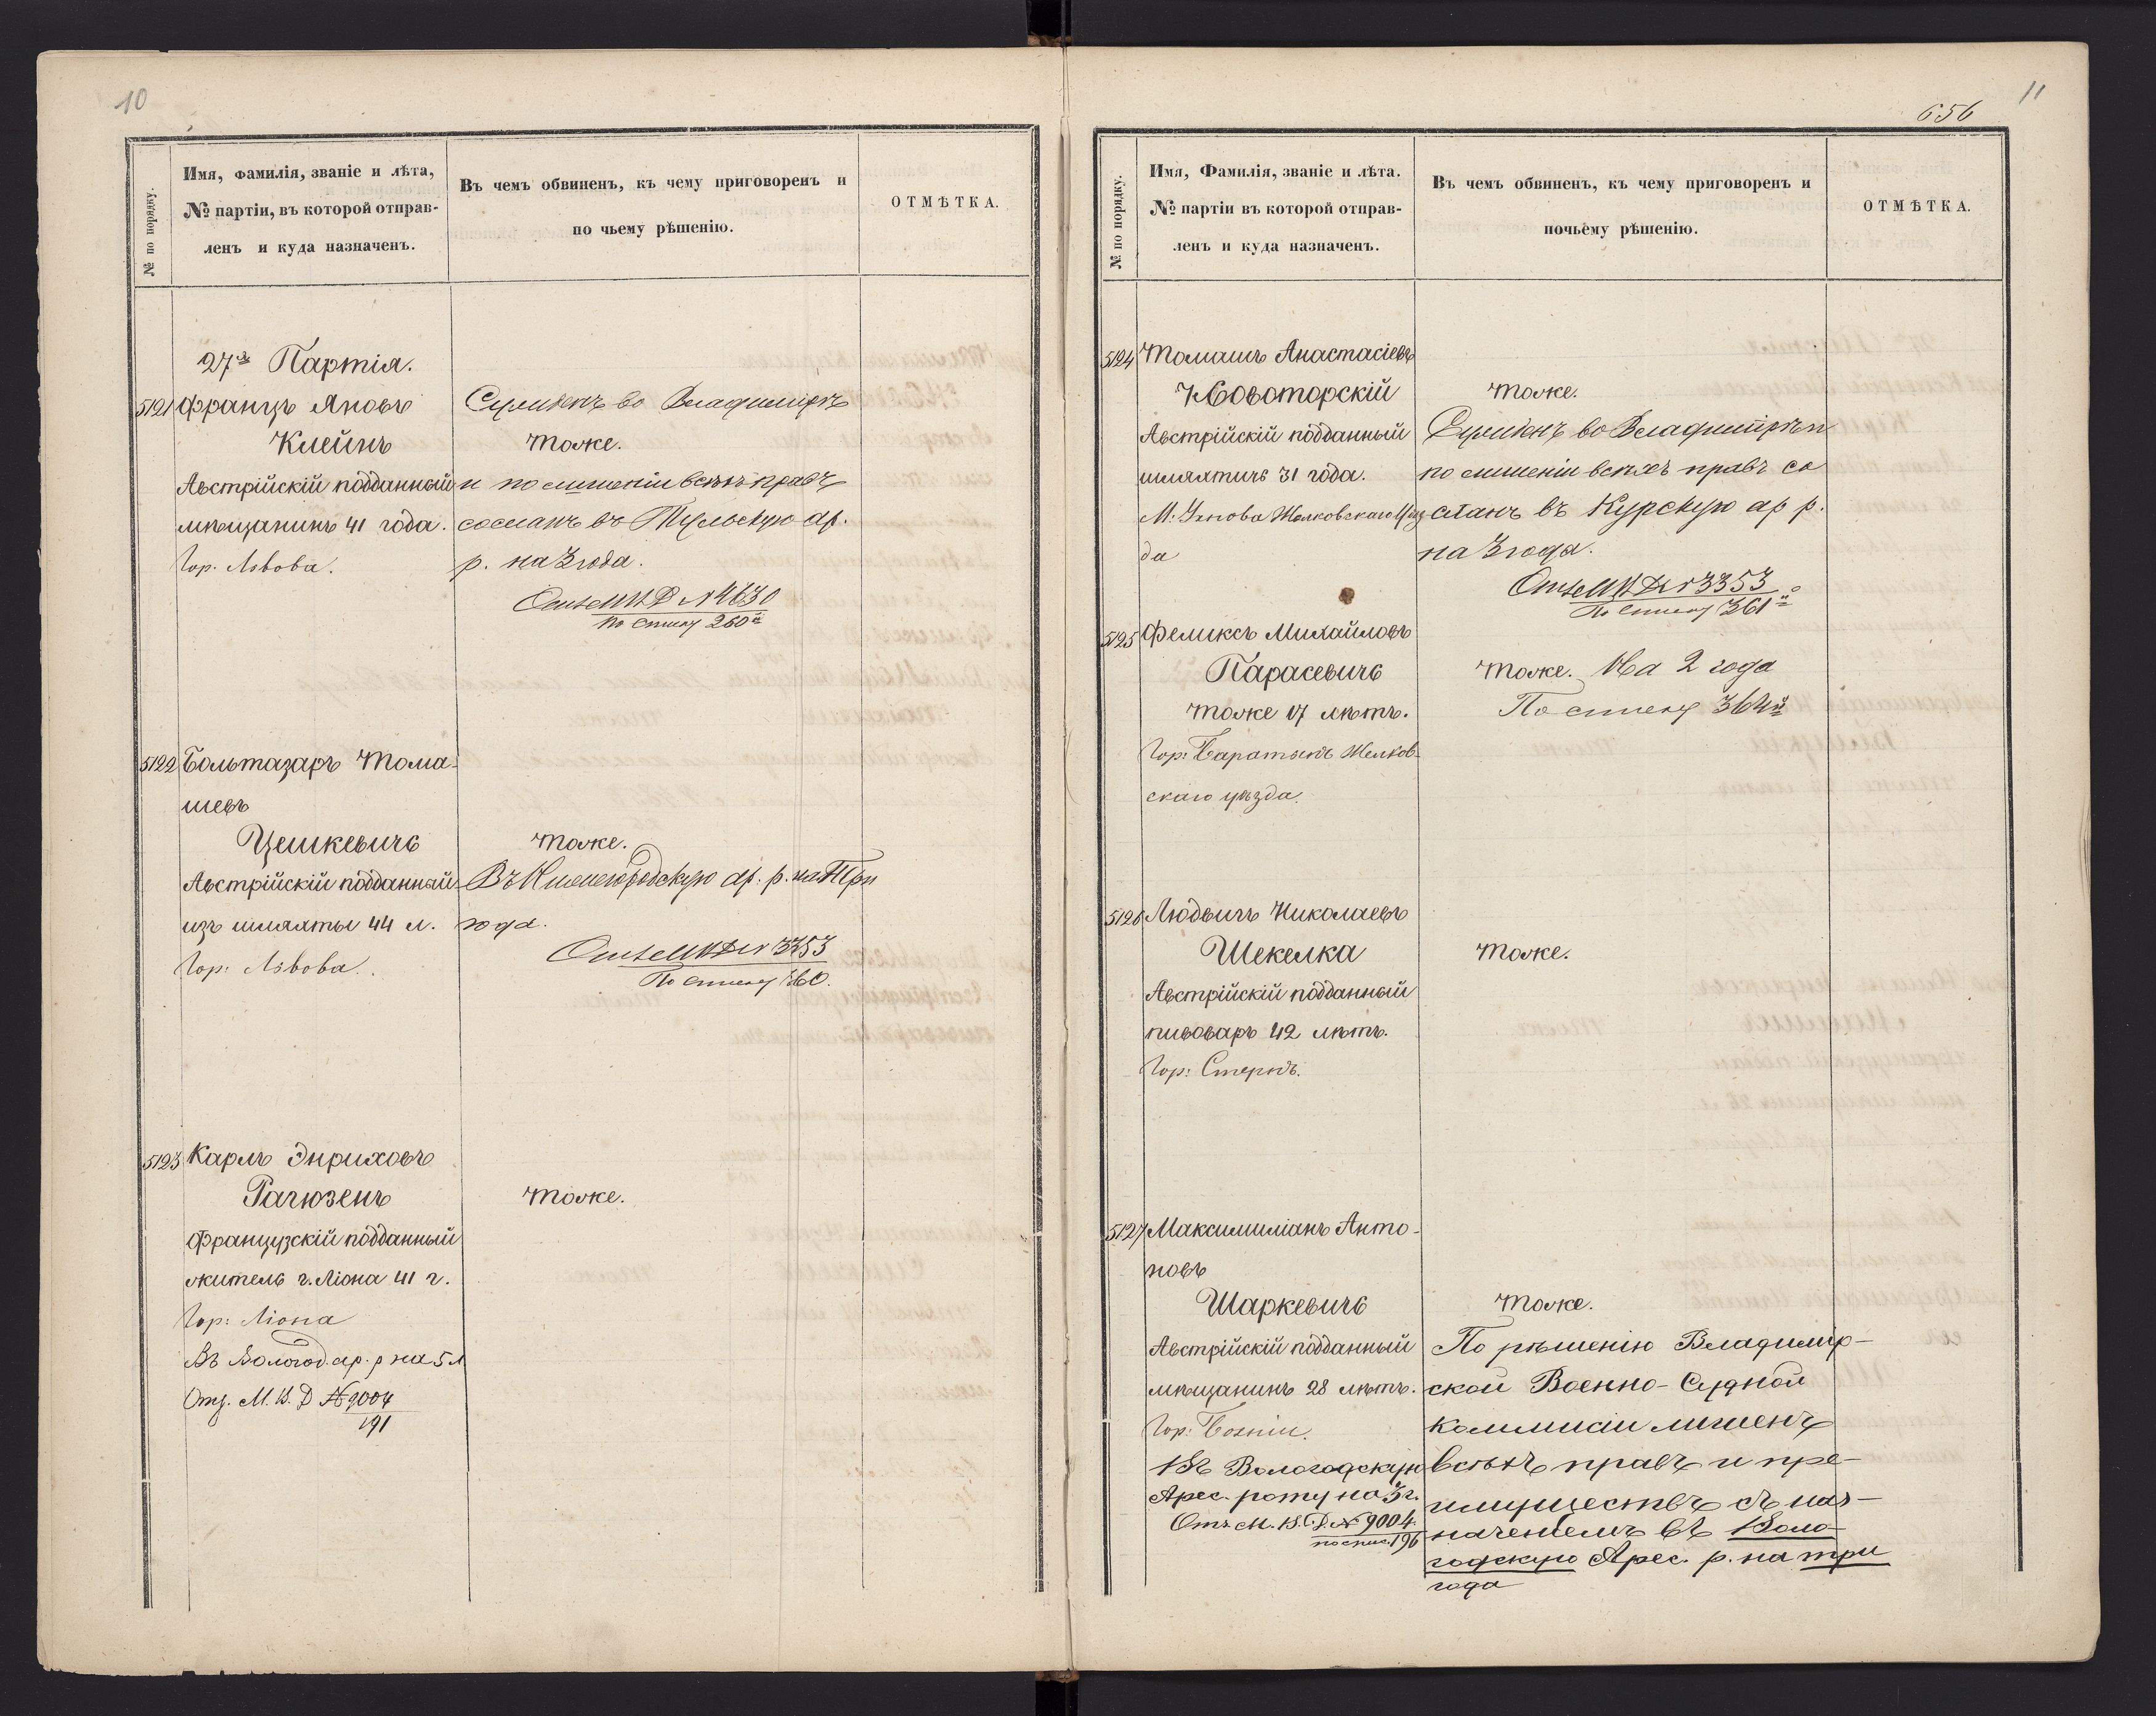 10
№ по порядку.
Имя, Фамилія, званіе и лѣта,
№ партіи, въ которой отправ-
ленъ и куда назначенъ.
Въ чемъ обвиненъ, къ чему приговоренъ и
по чьему рѣшенію.
ОТМѢТКА.
27я Партія.
5121 Францъ Яновъ
Клейнъ
Австрійскій подданный
мѣщанинъ 41 года.
Гор. Львова.
Сужденъ во Владимирѣ
тоже.
и по лишеніи всѣхъ правъ
сосланъ въ Тульскую ар.
р. на 3 года.
М В Д № 4630
по списку 260й
5122 Больтазаръ Тома-
шевъ
Цешкевичъ
Австрійскій подданный
изъ шляхты 44 л.
Гор: Львова.
тоже.
Въ Нижегородскую ар: р. на Три
года.
М В Д № 3353
По списку 360.
5123 Карлъ Энриховъ
Рагюзенъ
Французскій подданный
житель г. Ліона 41 г.
Гор: Ліона
Въ Вологод. ар. р на 5 л
Отз. М. В. Д № 9004
191
тоже.
11
656
№ по порядку.
Имя, Фамилія, званіе и лѣта.
№ партіи въ которой отправ-
ленъ и куда назначенъ.
Въ чемъ обвиненъ, къ чему приговоренъ и
почьему рѣшенію.
ОТМѢТКА.
5124 Томашъ Анастасіевъ
Новоторскій
Австрійскій подданный
шляхтичъ 31 года.
М: Угнова Жолковскаго Уѣз
да
тоже.
Сужденъ во Владимірѣ и
по лишеніи всѣхъ правъ со
сланъ въ Курскую ар р.
на 3 года.
М В Д № 3353
По списку 361й
5125 Феликсъ Михайловъ
Парасевичъ
тоже 17 лѣтъ.
Гор: Жолков-
скаго уѣзда.
тоже. На 2 года
По списку 364й
5126 Людвигъ Николаевъ
Шекелка
Австрійскій подданный
пивоваръ 42 лѣтъ.
Гор:
тоже.
5127 Максимиліанъ Анто-
новъ
Шаркевичъ
Австрійскій подданный
мѣщанинъ 28 лѣтъ.
Гор: Бохніи.
Въ Вологодскую
Арес. роту на 3 г.
Отз. М. В. Д. № 9004.
по спис. 196
тоже.
По рѣшенію Владимір-
ской Военно-Судной
коммисіи лишенъ
всѣхъ правъ и пре-
имуществъ съ наз-
наченіемъ въ Воло-
годскую Арес. р. на три
года